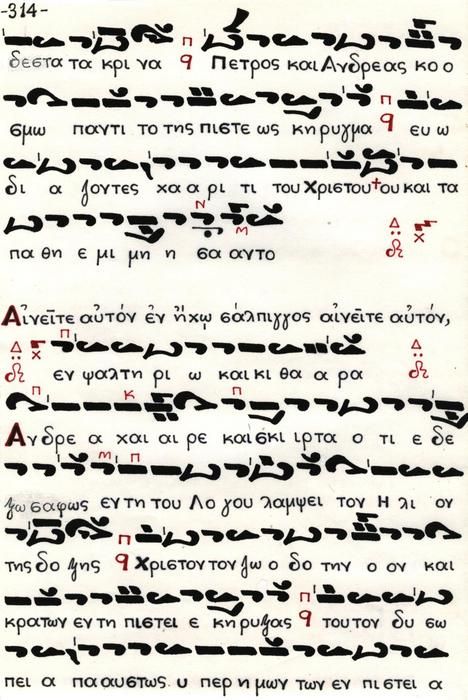 -314-
δεστα τα κρι να Πετρος και Ανδρεας κο ο
σμω παντι το της πιστε ως κη ρυγμα ευ ω
δι α ζοντες χα α ρι τι του Χριστου + ου και τα
πα θη ε μι μη η σα αντο
Αἰνεῖτε αὐτόν ἐν ἤχῳ σάλπιγγος αἰνεῖτε αὐτόν,
εν ψαλτη ρι ω και κι θα α ρα
Ανδρε α χαι αι ρε και σκι ιρτα ο τι ε δε
ζω σαφως εν τη του Λο γου λαμψει τον Η λι ον
της δο ξης Χριστον τον ζω ο δο την ο ον και
κρατων εν τη πιστει ε κη ρυξας τουτον δυ σω
πει α πα αυστως υ περ η μων των εν πι στει α